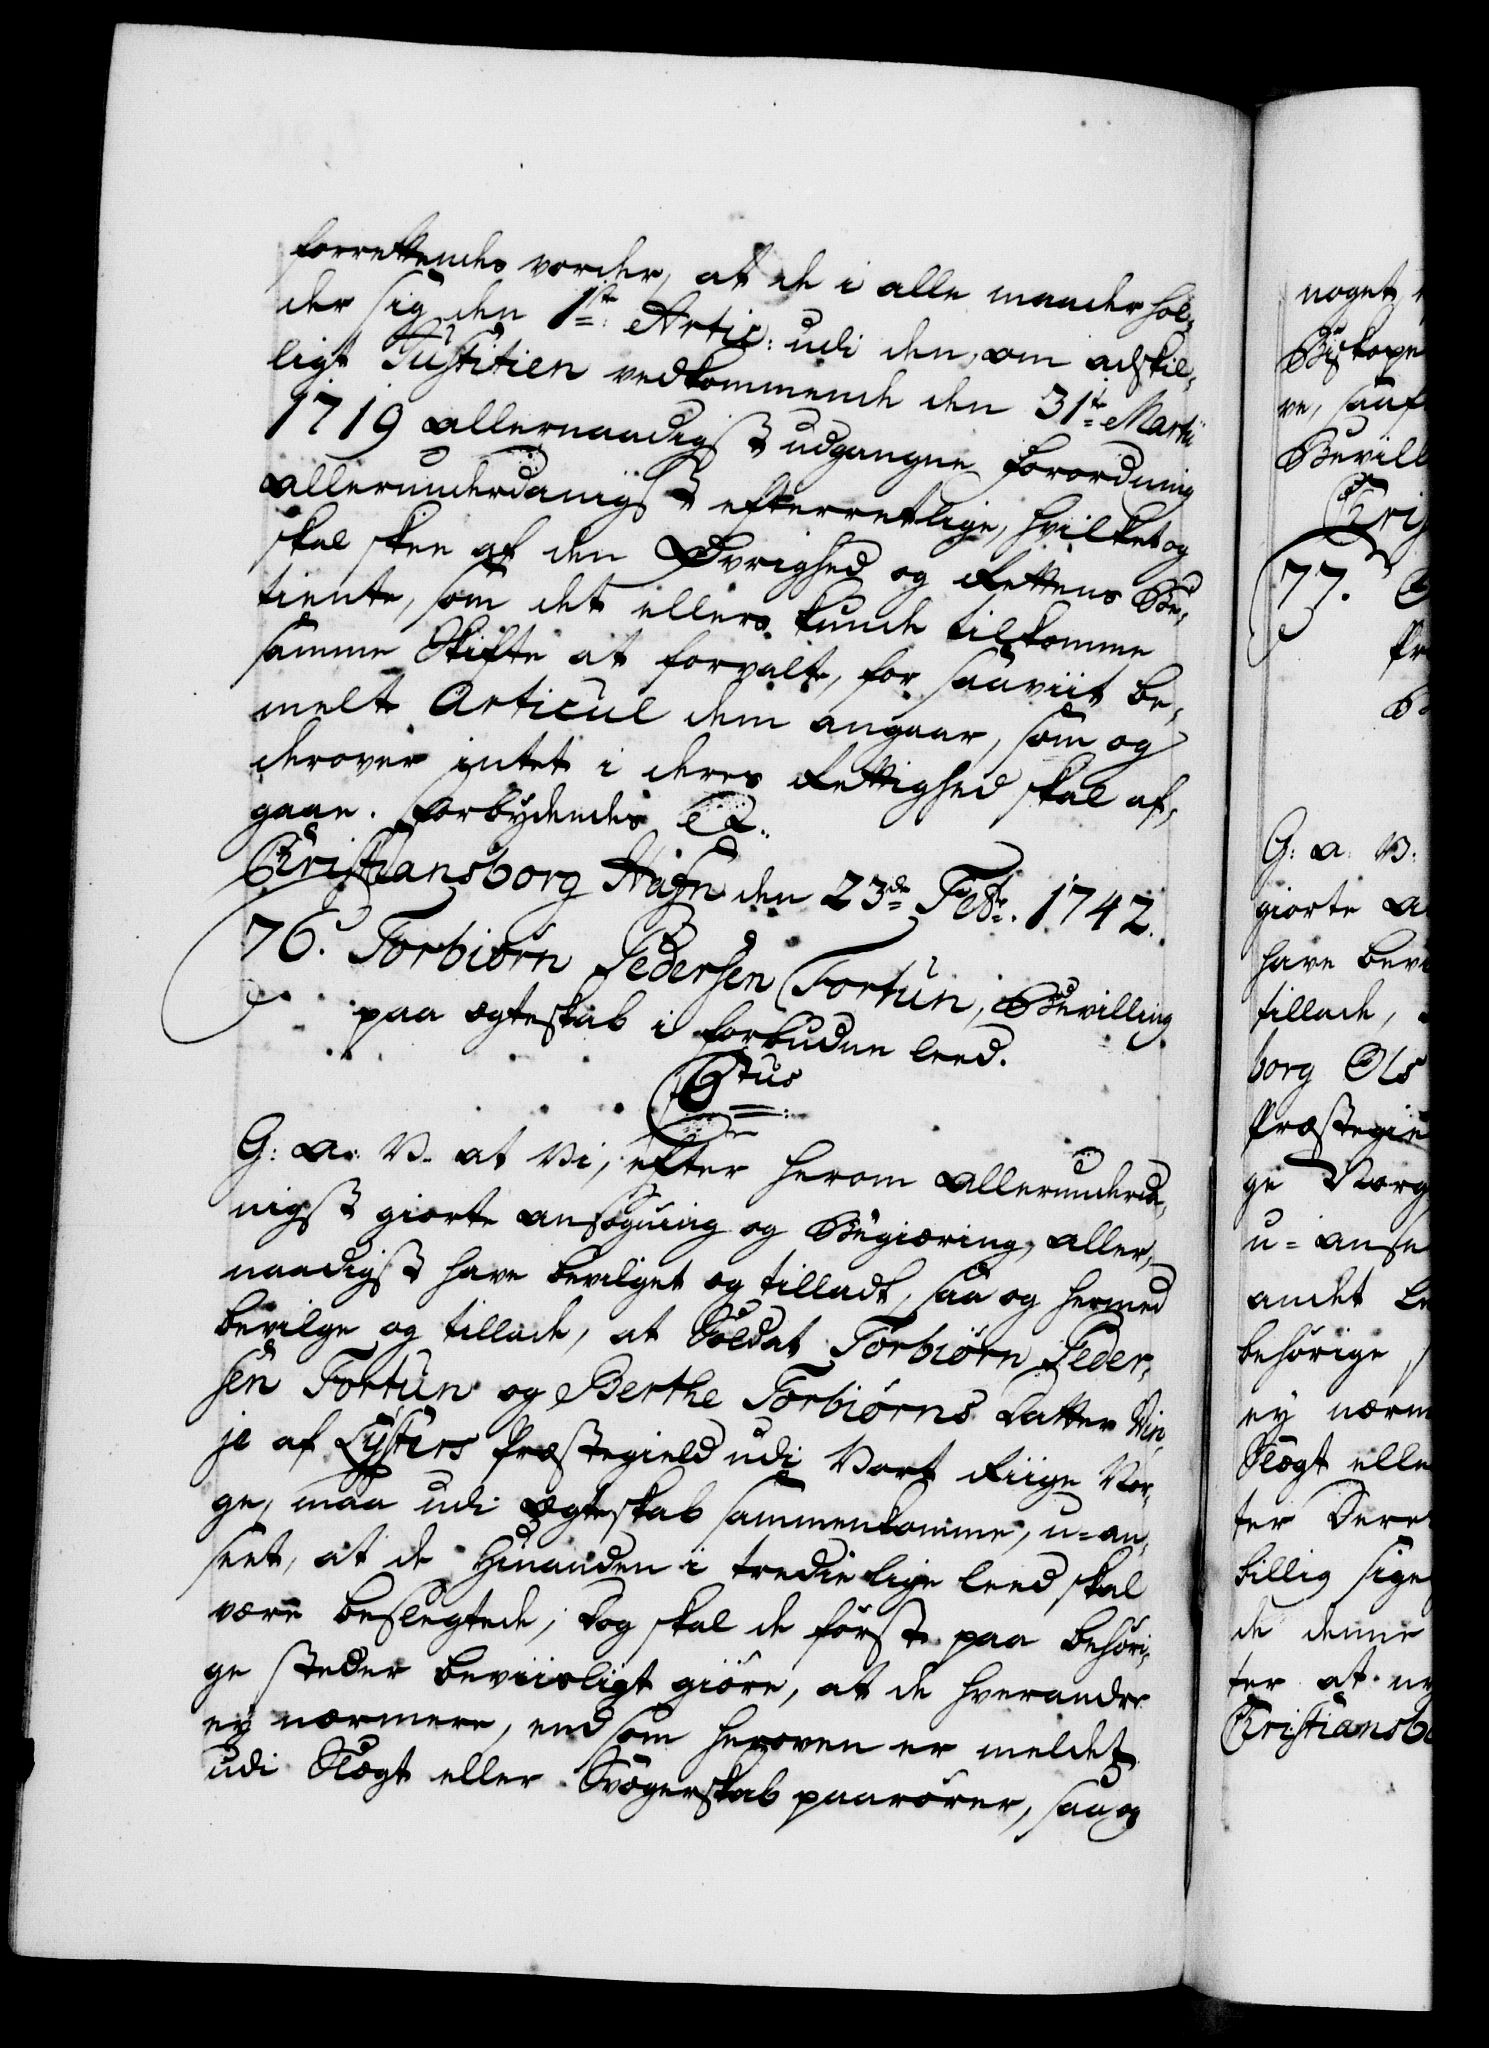 forrettendes vorder, at de i alle maader hol,,
der sig den 1ste Artic: udi den, om adskil,,
ligt Justitien vedkommende den 31te Martii
1719 allernaadigst udgangne Forordning
allerunderdanigst efterretlige, hvilket og
skal skee af den Øvrighed og Rettens Be,,
tiente, som det ellers kunde tilkomme
samme Skifte at forvalte, for saaviit be,,
melte Articul dem angaar, som og
derover intet i deres Rettighed skal af,,
gaae. Forbydendes etc.
Christiansborg Hafn den 23de Febr. 1742.
76. Torbiørn Pedersen Fortun, Bevilling
paa ægteskab i forbuden leed.
Gtus
G: a: V. at Vi, efter herom allerunderda,,
nigst giorte ansøgning og Begiæring, aller,,
naadigst have bevilget og tilladt, saa og hermed
bevilge og tillade, at Soldat Torbiørn Peder,,
sen Fortun og Berthe Torbiørns Datter Vin,,
je af Lysters Præstegield udi Vort Riige Nor,,
ge, maa udi Ægteskab sammenkomme, u-an,,
seet, at de Hinanden i tredie lige leed skal
være beslegtede; Dog skal de først paa behøri,,
ge steder beviisligt giøre, at de hverandre
ey nærmere, end som heroven er meldet
udi Slægt eller Svogerskab paarører, saa og
noget
Biskope
ve, saaf
Bevill
Chris
77.
Pr
B
G: a: V:
giorte a
have bevi
tillade,
borg Ols
Præstegie
ge Norg
u-anse
andet le
behørige
ey nærm
Slægt elle
ter Dere
billig sige
de denne
ter at ny
Christiansbo